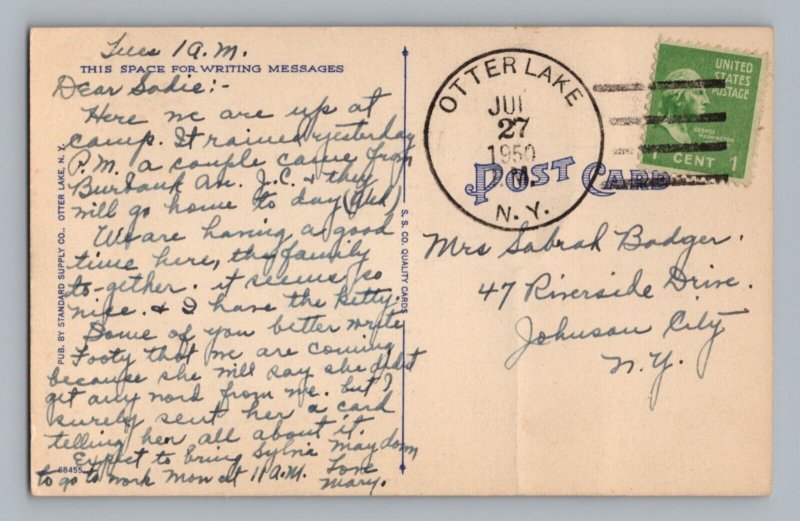 Tues 1 A.M.
THIS SPACE FOR WRITING MESSAGES
Dear Sadie:-
Here we are up at
camp. It rained yesterday
P.M. a couple came from
Burbank Av. J.C. & they
will go home to day (Wed)
We are having a good
time here, the family
to-gether. it seems so
nice. & I have the Ketty.
Some of you better write
Footy that we are coming
because she will say she didnt
get any word from me. but I
surely sent her a card
telling her all about it.
Expect to bring Sylvia May down
to go to work Mon at 11 A.M. Love
Mary.
68455
PUB. BY STANDARD SUPPLY CO., OTTER LAKE, N. Y.
S. S. CO. QUALITY CARDS
OTTER LAKE
JUL
27
1950
M
N. Y.
POST CARD
UNITED
STATES
POSTAGE
GEORGE
WASHINGTON
1 CENT 1
Mrs Sabrah Badger.
47 Riverside Drive.
Johnson City
N.Y.